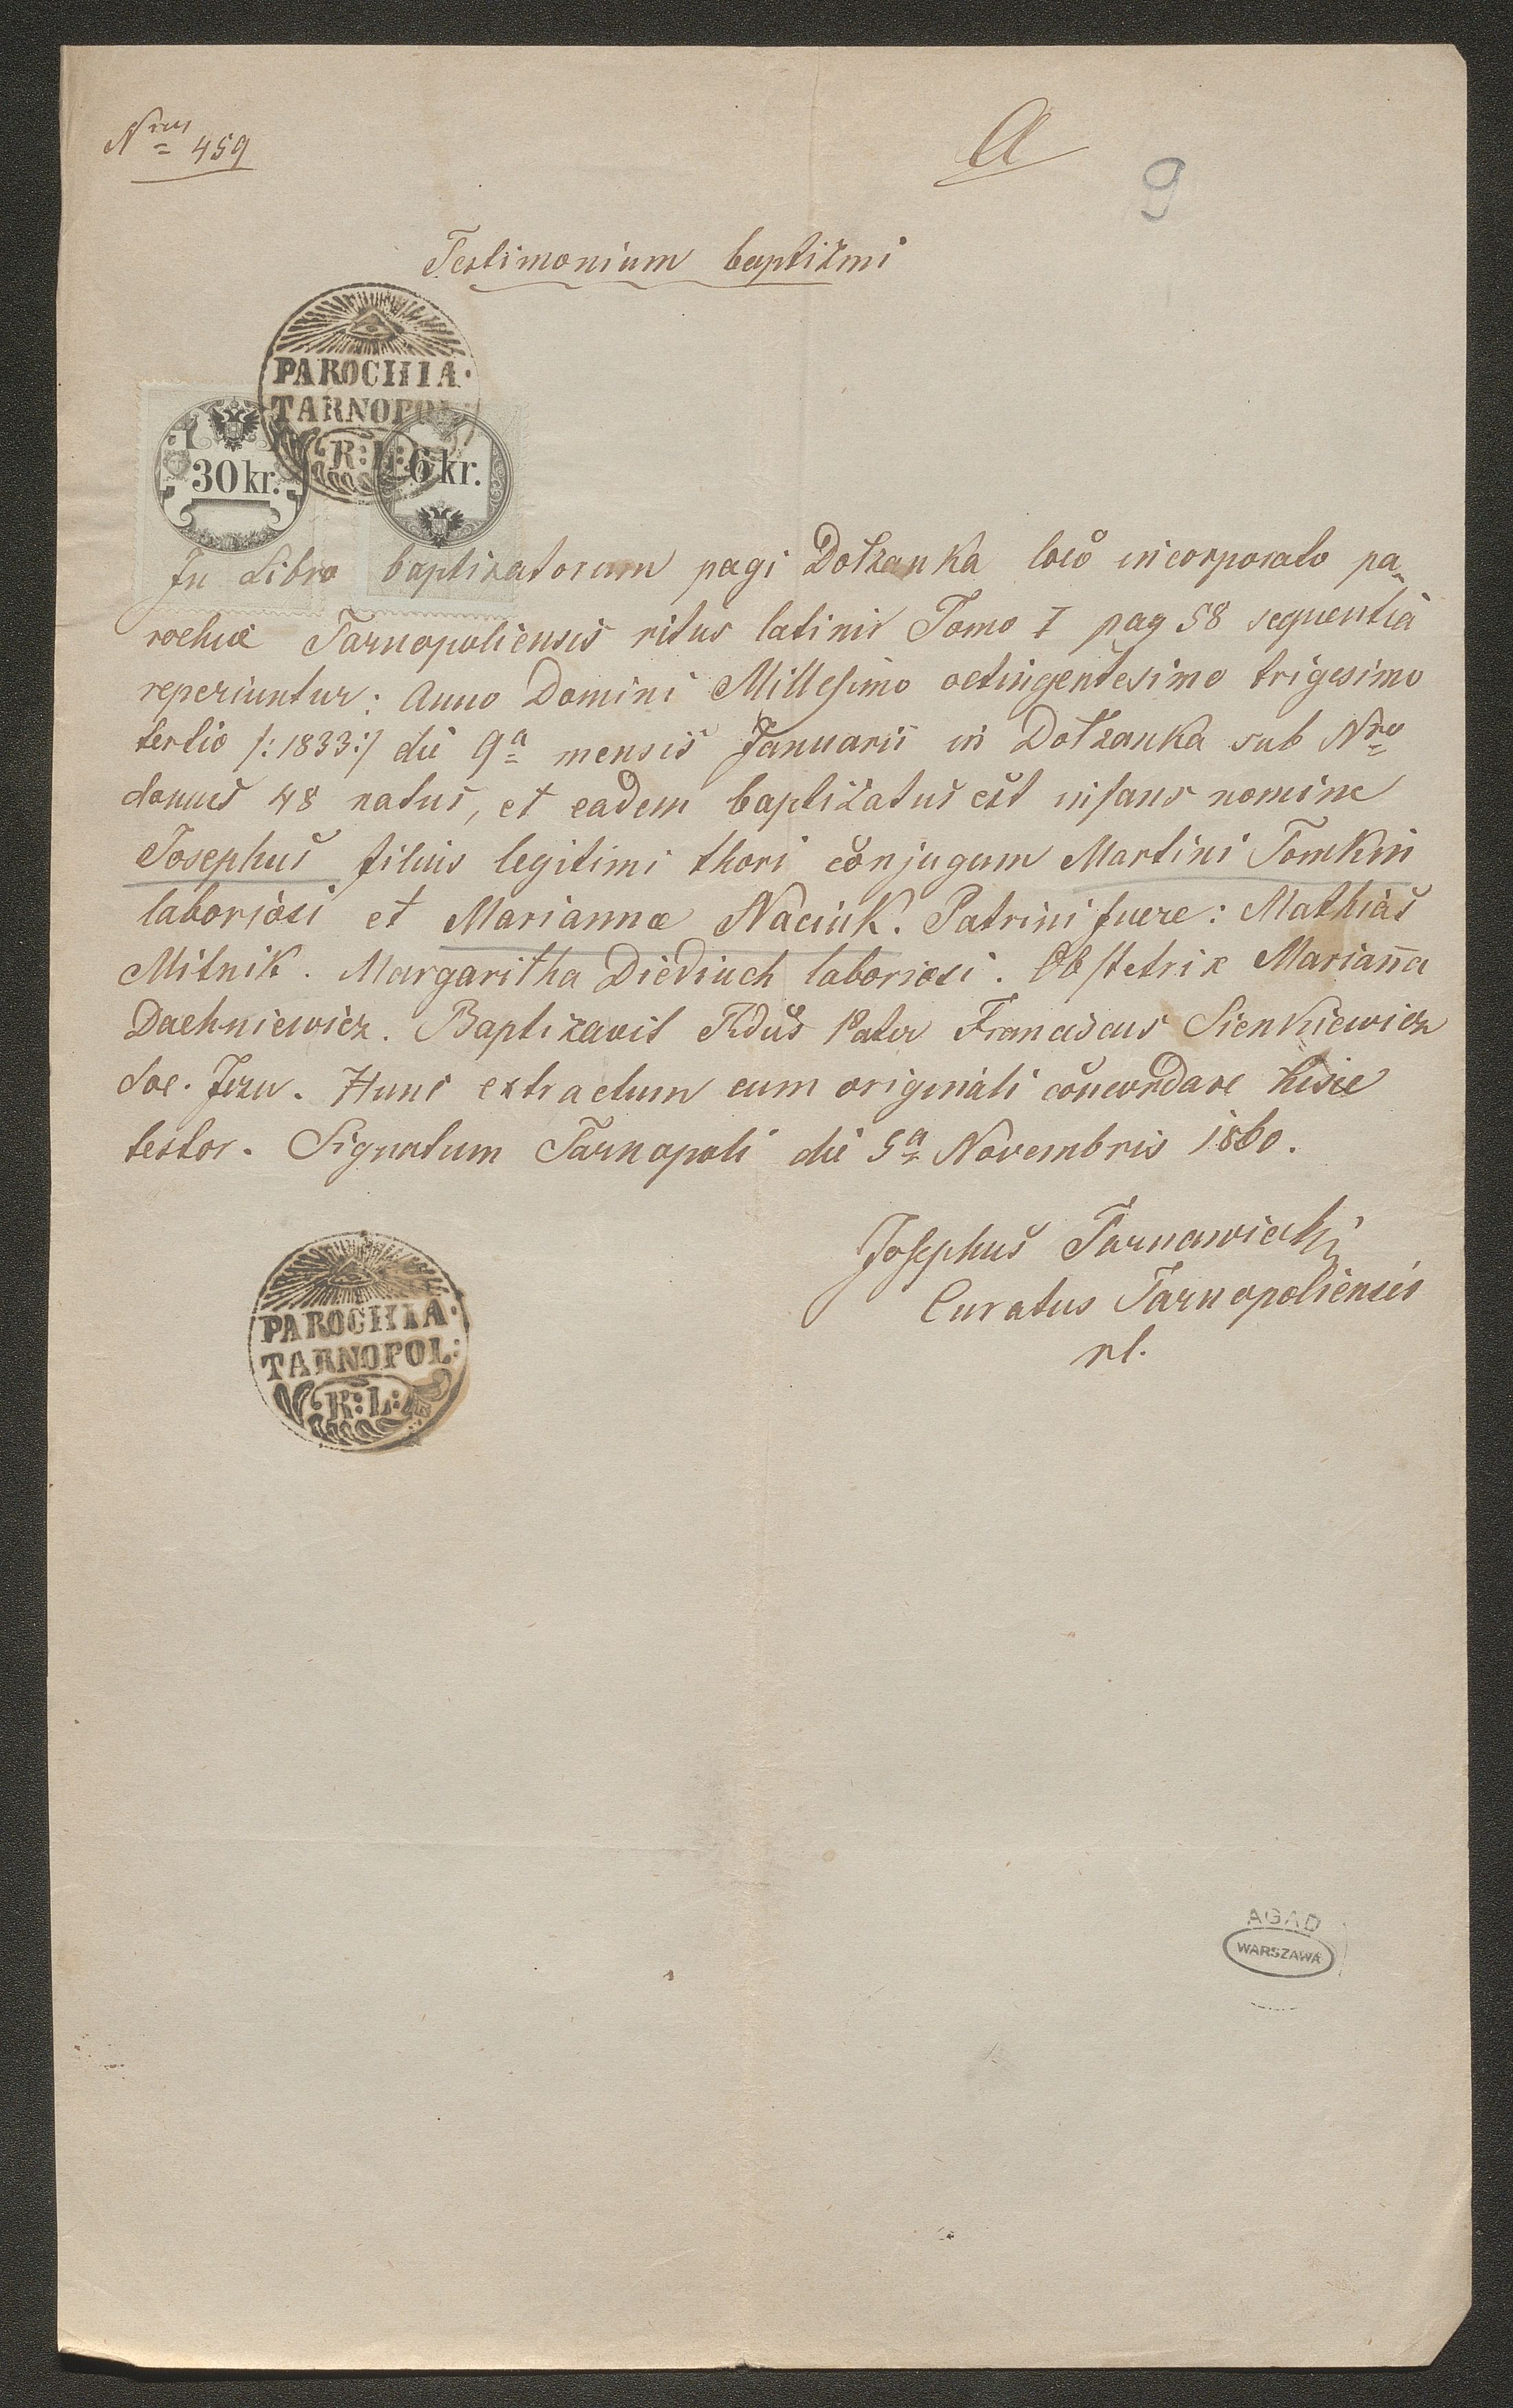 Nrus 459
A
9
Testimonium baptizmi
PAROCHIA
TARNOPOL:
R: L:
30 kr.
6 kr.
In Libro baptizatorum pagi Dołzanka loco incorporato pa-
rochiæ Tarnopoliensis ritus latini Tomo I pag 58 sequentia
reperiuntur: Anno Domini Millesimo octingentesimo trigesimo
tertio /: 1833 :/ die 9a mensis Januarii in Dołzanka sub Nro
domus 48 natus, et eadem baptizatus est infans nomine
Josephus filius legitimi thori conjugum Martini Tomkin
laboriosi et Mariannæ Naciuk. Patrini fuere: Mathias
Mitnik. Margaritha Diediuch laboriosi. Obstetrix Marianna
Dachniewicz. Baptizavit Rdus Pater Franciscus Sienkiewicz
Soc. Jezu. Hunc extractum cum originali concordare hisce
testor. Signatum Tarnopoli die 5a Novembris 1860.
Josephus Tarnawiecki
Curatus Tarnopoliensis
rl.
PAROCHIA
TARNOPOL:
R: L:
AGAD
WARSZAWA